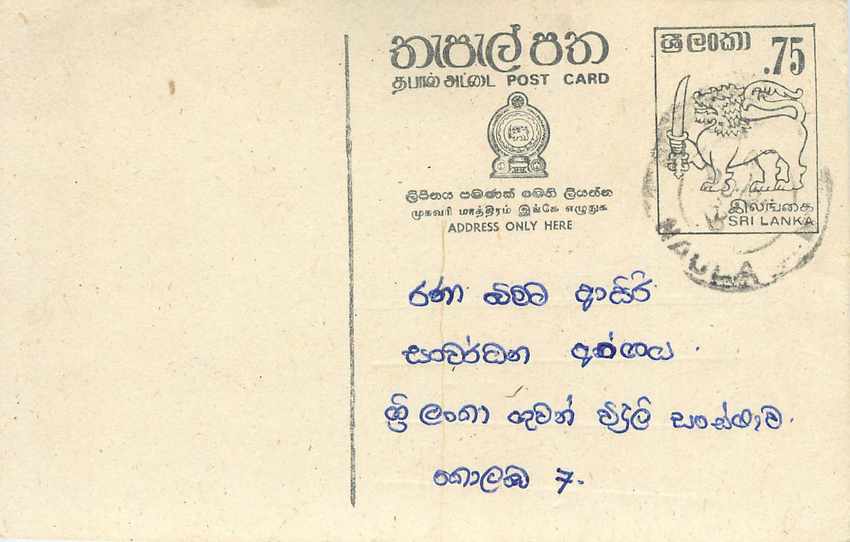 තැපැල් පත
தபால் அட்டை POST CARD
ලිපිනය පමණක් මෙහි ලියන්න
முகவரி மாத்திரம் இங்கே எழுதுக
ADDRESS ONLY HERE
ශ්‍රී ලංකා
.75
இலங்கை
SRI LANKA
NAULA
රණ බිමට ආසිරි
සංවර්ධන අංශය .
ශ්‍රී ලංකා ගුවන් විදුලි සංස්ථාව.
කොළඹ 7.